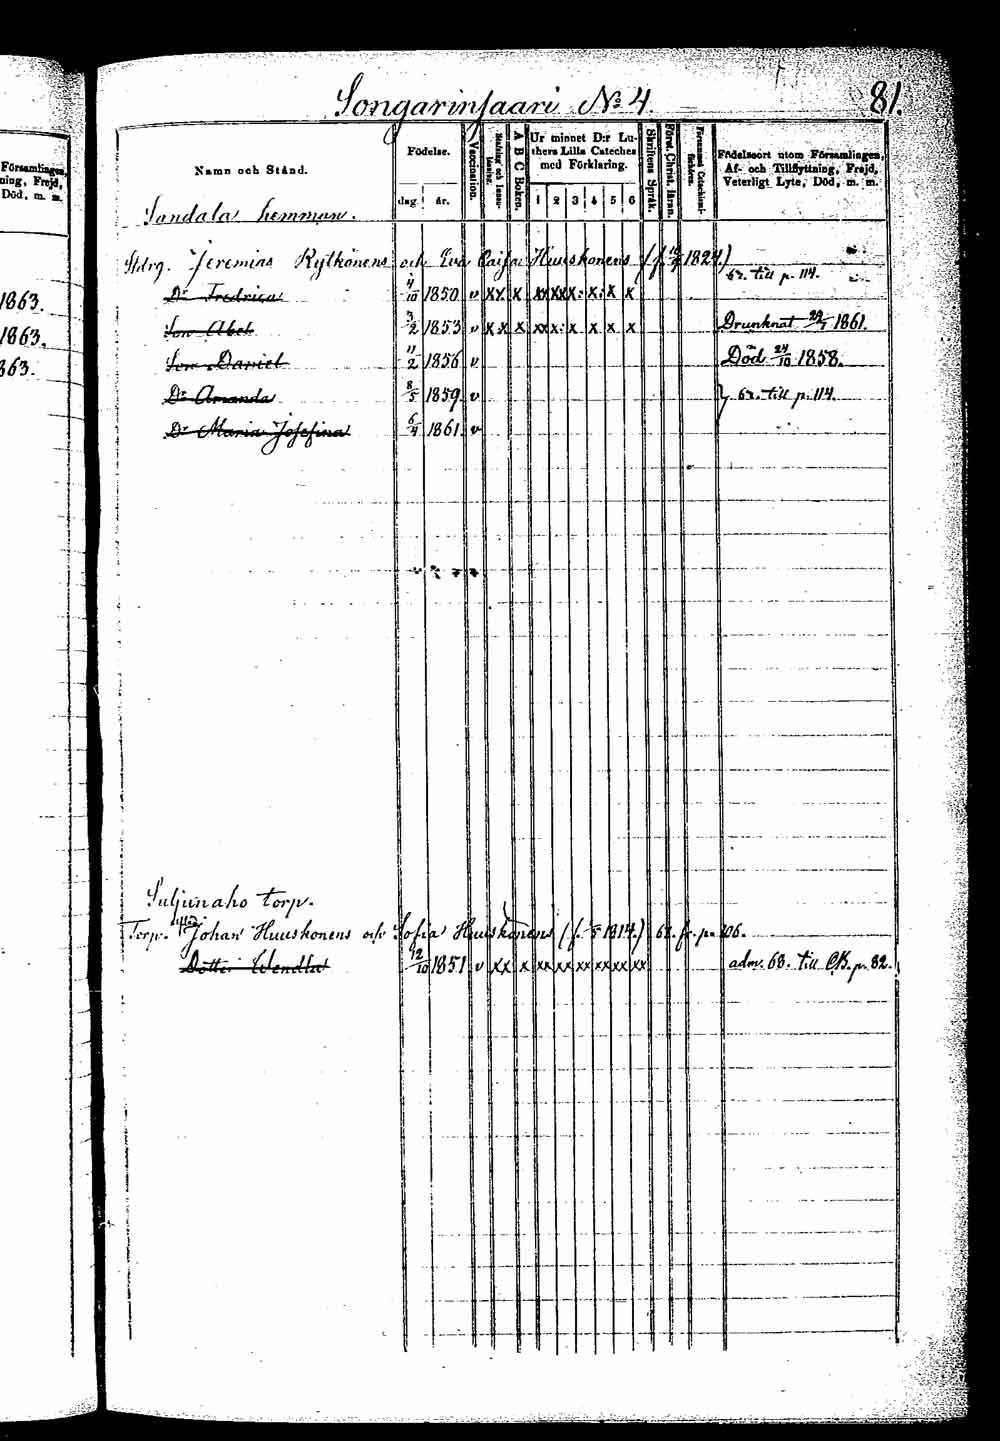 Songarinsaari No 4.
81.
Församlingen,
ning, Frejd,
Död, m. m.
1863.
1863.
863.
Namn och Stånd.
Födelse.
dag. år.
Vaccination.
A B C Boken.
Ur minnet D:r Lu-
thers Lilla Cateches
med Förklaring.
1 2 3 4 5 6
Skriftens Språk.
Först. Christ. läran.
Födelseort utom Församlingen,
Af- och Tillflyttning, Frejd,
Veterligt Lyte, Död, m. m.
Sandala hemman.
Stdrg. Jeremias Rytkönens och Eva Caisa Huuskonens (f. 1824.)
62. till p. 114.
Dr Fredrica 4/10 1850 v xx. x xx xx x. x. x x
Son Abel 3/2 1853 v x x x xx x. x x x x Drunknat 29/7 1861.
Son Daniel 11/2 1856 v Död 24/10 1858.
Dr Amanda 8/5 1859 v } 62. till p. 114.
Dr Maria Josefina 6/4 1861 v
Suljunaho torp.
Torp. Johan Huuskonens och Sofia Huuskonens (f. /5 1814.) 62. fr. p. 106.
Dotter Wendla 12/10 1851 v xx x xx xx xx xx xx xx adm. 68. till C.B. p. 82.